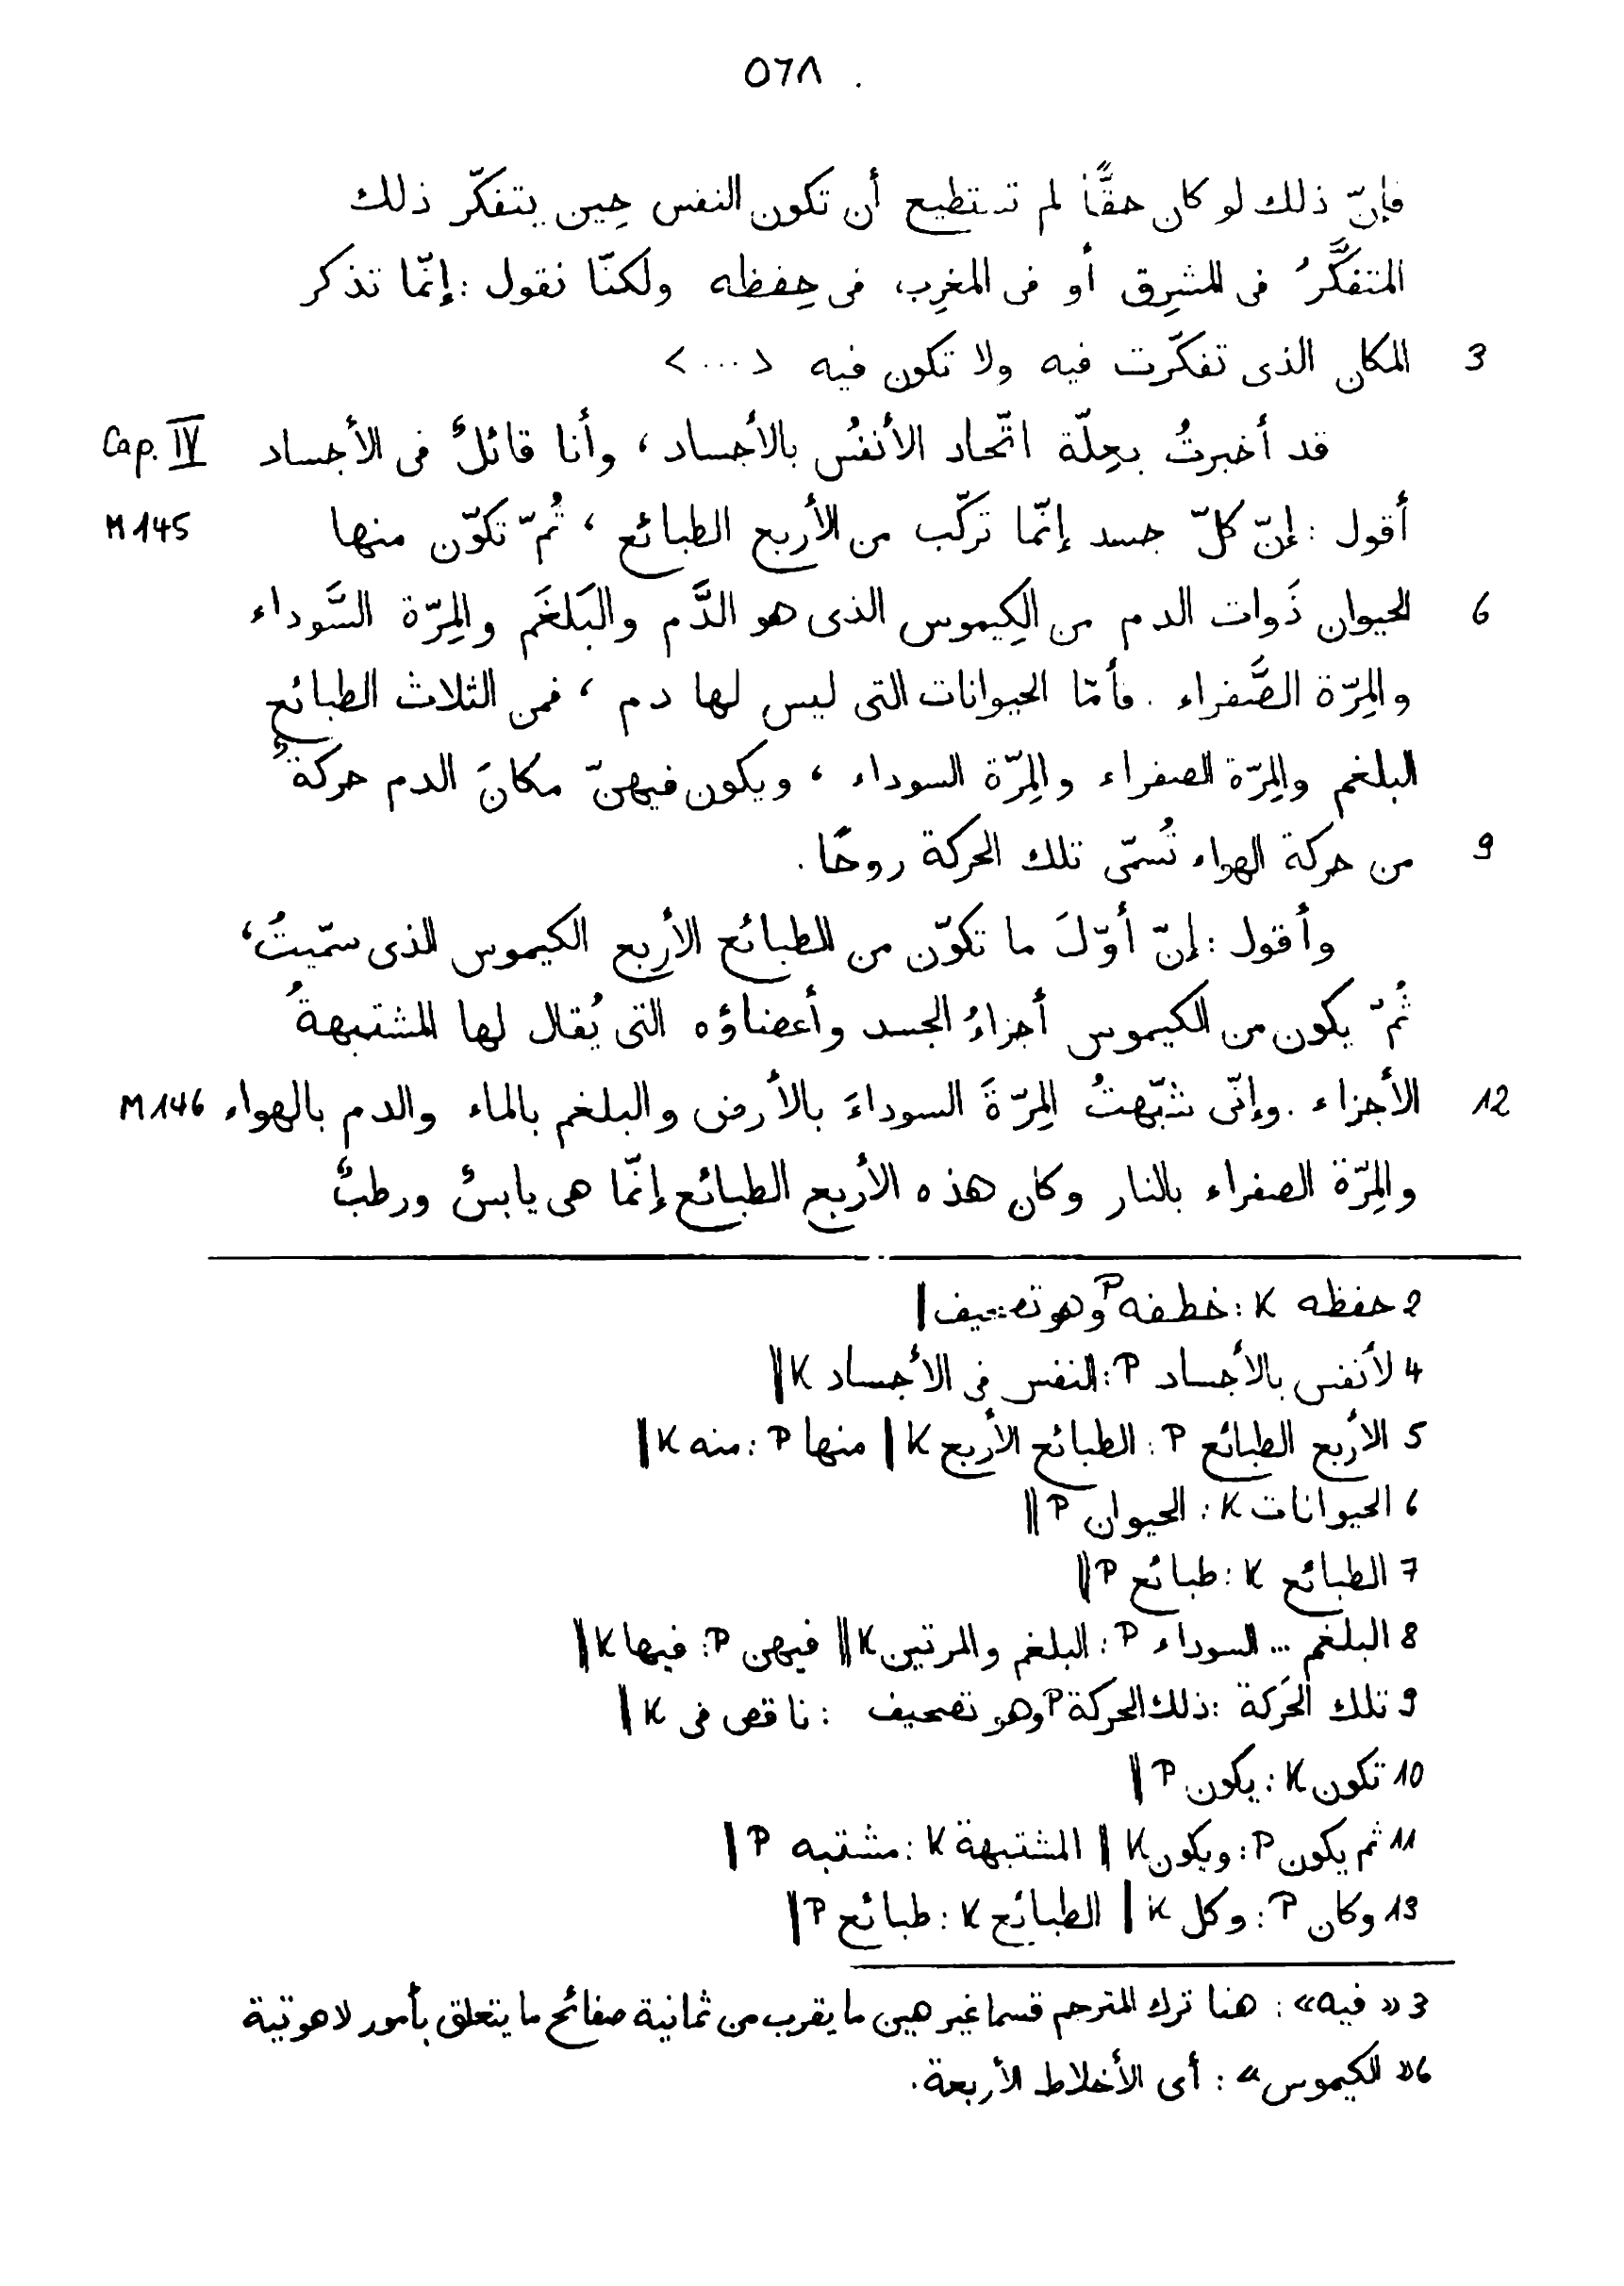 ٥٦٨
فإنّ ذلك لو كان حقًّا لم تستطيع أن تكون النفس حِين يتفكّر ذلك
المتفكَّرُ فى المشرِق أو فى المغرِب، فى حِفظه ولكنّا نقول : إنّما تذكر
3 المكان الذى تفكّرت فيه ولا تكون فيه < ... >
Cap. IV قد أخبرتُ بعِلّة اتّحاد الأنفُس بالأجساد ، وأنا قائلٌ فى الأجساد
M 145 أقول : إنّ كلّ جسد إنّما تركّب من الأربع الطبائع ، ثُمّ تكوّن منها
6 الحيوان ذَوات الدم من الكِيموس الذى هو الدَّم والبَلغَم والمِرّة السَّوداء
والمِرّة الصَّفراء . فأمّا الحيوانات التى ليس لها دم ، فمن الثلاث الطبائع
البلغم والمِرّة الصفراء والمِرّة السوداء ، ويكون فيهنّ مكانَ الدم حركةٌ
9 من حركة الهواء تُسمّى تلك الحركة روحًا .
وأقول : إنّ أوّلَ ما تكوّن من الطبائع الأربع الكيموس الذى سمّيتُ،
ثُمّ يكون من الكيموس أجزاءُ الجسد وأعضاؤه التى يُقال لها المشتبهةُ
12 الأجزاء . وإنّى شبّهتُ المِرّةَ السوداءَ بالأرض والبلغم بالماء والدم بالهواء M 146
والمِرّة الصفراء بالنار وكان هذه الأربع الطبائع إنّما هى يابسٌ ورطبٌ
2 حفظه K : خطفه P وهو تصحيف |
4 لأنفس بالأجساد P : النفس فى الأجساد K ||
5 الأربع الطبائع P : الطبائع الأربع K | منها P : منه K |
6 الحيوانات K : الحيوان P ||
7 الطبائع K : طبائع P ||
8 البلغم ... السوداء P : البلغم والمرتين K || فيهن P : فيها K ||
9 تلك الحَركة : ذلك الحركة P وهو تصحيف : ناقص فى K |
10 تكون K : يكون P |
11 ثم يكون P : ويكون K | المشتبهة K : مشتبه P |
13 وكان P : وكل K | الطبائع K : طبائع P |
3 « فيه » : هنا ترك المترجم قسما غير هين ما يقرب من ثمانية صفائح ما يتعلق بأمور لاهوتية
6 « الكيموس » : أى الأخلاط الأربعة .